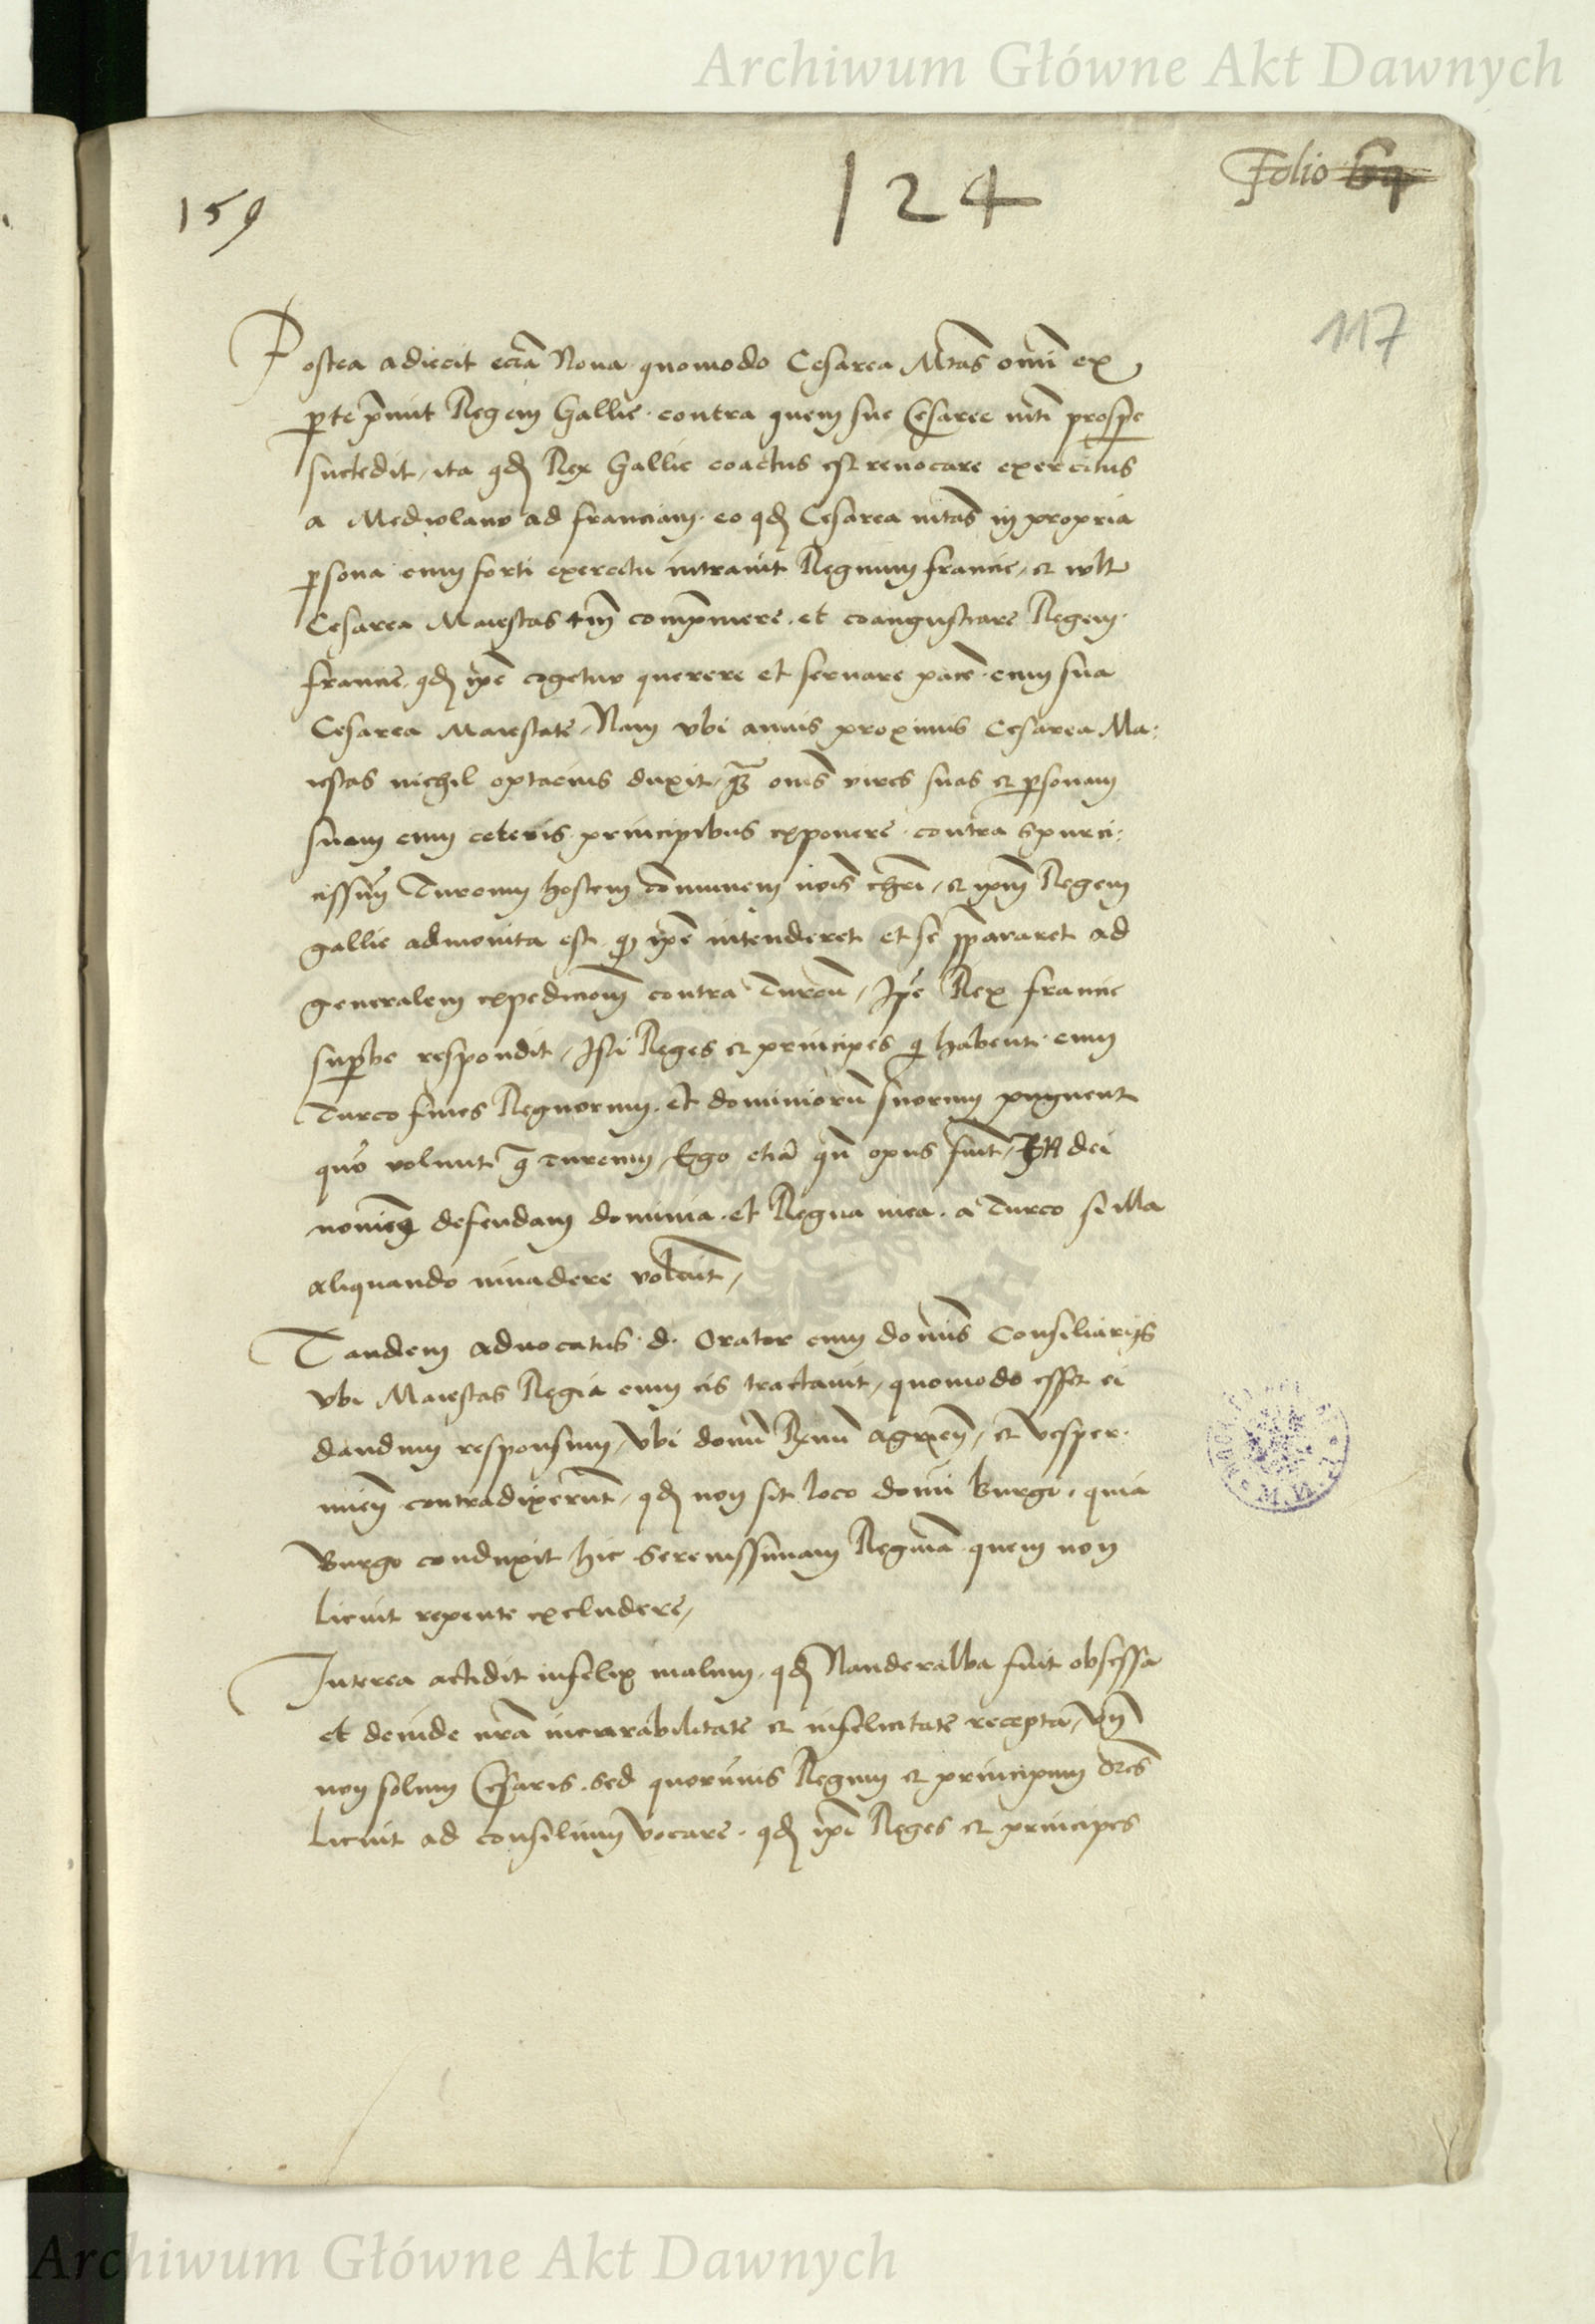 Archiwum Główne Akt Dawnych
Folio
159
124
117
Postea adiecit eciã Noua quomodo Cesarea Mtas omi ex
pte pmit Regem Gallie contra quem sue Cesaree mti prospe
succedit, ita qd Rex Gallie coactus est reuocare exercitus
a Mediolano ad franciam eo qd Cesarea mtas in propria
psona cum forti exercitu intrauit Regnum francie, et wlt
Cesarea Maiestas tm compmere et coangustiare Regem
francie qd ipe cogetur querere et seruare pace cum sua
Cesarea Maiestate, Nam vbi annis proximis Cesarea Ma:
iestas nichil optacius duxit, omes vires suas et psonam
suam cum ceteris principibus exponere contra spurci:
cissim Turcum hostem comunem nois chri, et ipm Regem
gallie admonita est qd ipe intenderet et se ppararet ad
generalem expedicionem contra Turcu, Ipe Rex francie
supbe respondit, Isti Reges et principes qi habent cum
Turco fines Regnorum et dominioru suorum pugnent
quo volunt turcum, Ego etiã qn opus fuit, IN dei
nomie defendam dominia et Regna mea a Turco si illa
aliquando inuadere voluit,
Tandem aduocatus d. Orator cum domis Consiliarijs
vbi Maiestas Regia cum eis tractauit, quomodo esset ei
dandum responsum, vbi domi Rmi agrien, et vesper
mien contradixerunt, qd non sit loco domi burgo, quia
Burgo conduxit hic Serenissimam Reginã quem non
licuit repente excludere,
Interea accidit infelix malum, qd Nanderalba fuit obsessa
et deinde nrã incurabilitate et infelicitate recepta, vn
non solum Cesaris sed quorumuis Regum et principum ores
licuit ad consilium vocare qd ipi Reges et principes
Archiwum Główne Akt Dawnych